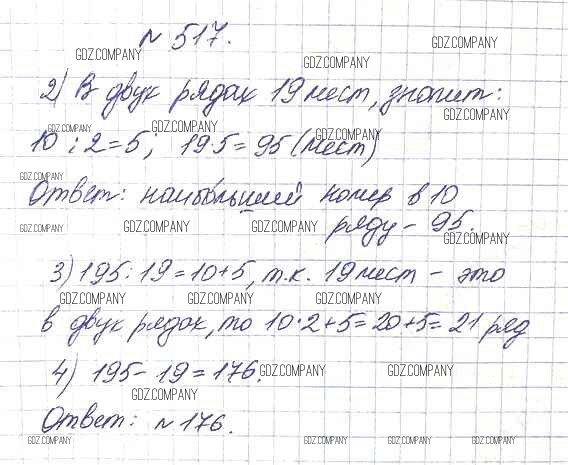 № 517.
GDZ.COMPANY GDZ.COMPANY GDZ.COMPANY
2) В двух рядах 19 мест, значит:
GDZ.COMPANY GDZ.COMPANY GDZ.COMPANY GDZ.COMPANY
10 : 2 = 5; 19·5 = 95 (мест)
GDZ.COMPANY
Ответ: наибольший номер в 10
GDZ.COMPANY GDZ.COMPANY GDZ.COMPANY GDZ.COMPANY
ряду - 95.
3) 195 : 19 = 10 + 5, т.к. 19 мест - это
GDZ.COMPANY GDZ.COMPANY GDZ.COMPANY
в двух рядах, то 10·2+5 = 20+5 = 21 ряд
4) 195 - 19 = 176.
GDZ.COMPANY GDZ.COMPANY GDZ.COMPANY
Ответ: № 176.
GDZ.COMPANY GDZ.COMPANY GDZ.COMPANY GDZ.COMPANY